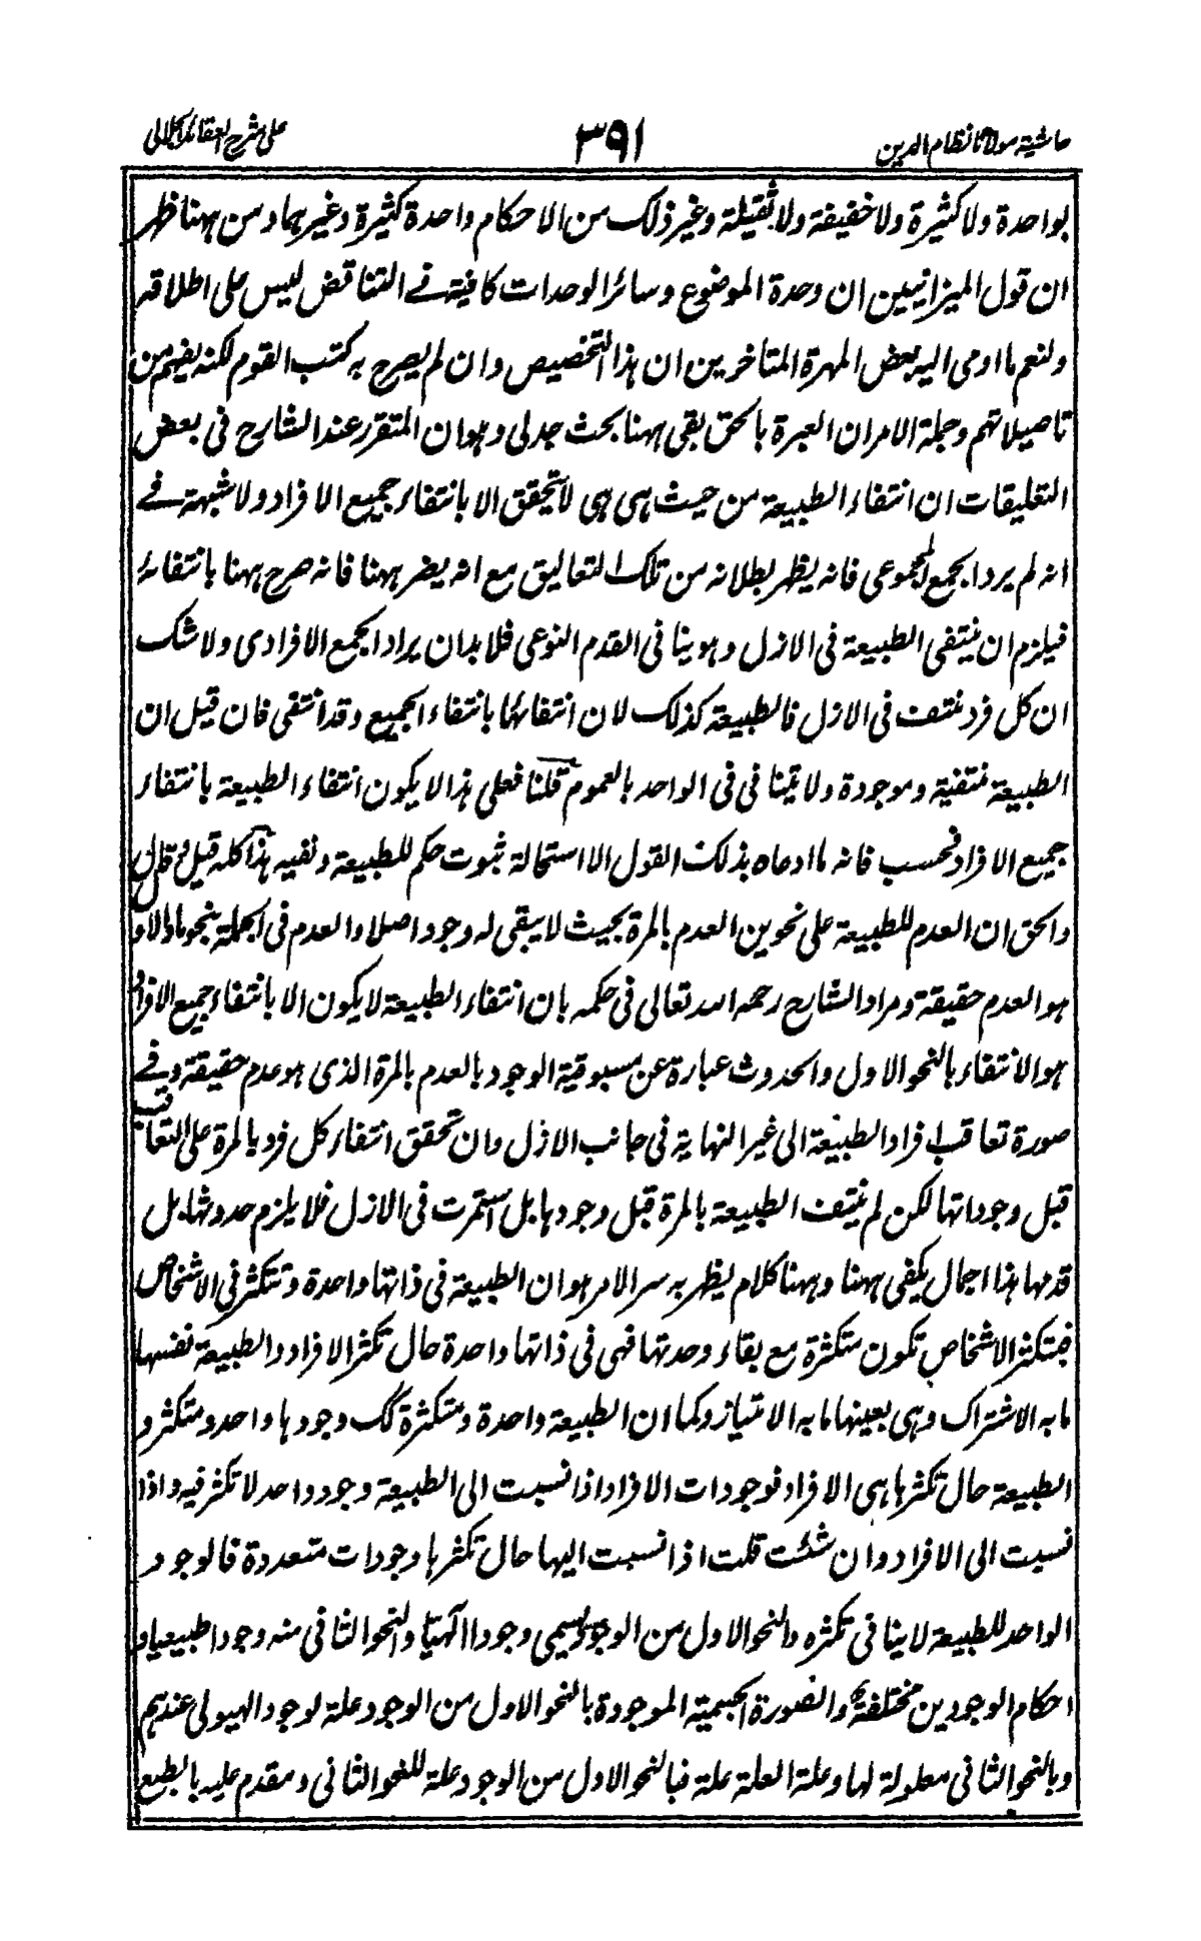 حاشية مولانا نظام الدين
٣٩١
على شرح العقائد الجلالى
بواحدة ولا كثيرة ولا خفيفة ولا ثقيلة وغير ذلك من الاحكام واحدة كثيرة وغيرهما ومن ههنا ظهر
ان قول الميزانيين ان وحدة الموضوع وسائر الوحدات كافية فى التناقض ليس على اطلاقه
ولنعم ما اومى اليه بعض المهرة المتاخرين ان هذا التخصيص وان لم يصرح به كتب القوم لكنه يفهم من
تاصيلاتهم وجملة الامر ان العبرة بالحق بقى ههنا بحث جدلى وهو ان المتقرر عند الشارح فى بعض
التعليقات ان انتفاء الطبيعة من حيث هى هى لا يتحقق الا بانتفاء جميع الافراد ولا شبهة فى
انه لم يرد الجمع المجموعى فانه يظهر بطلانه من تلك التعاليق مع انه يضر ههنا فانه صرح ههنا بانتفائه
فيلزم ان ينتفى الطبيعة فى الازل وهو ينافى القدم النوعى فلا بد ان يراد الجمع الافرادى ولا شك
ان كل فرد منتف فى الازل فالطبيعة كذلك لان انتفائها بانتفاء الجميع وقد انتفى فان قيل ان
الطبيعة منتفية وموجودة ولا يتنافى فى الواحد بالعموم قلنا فعلى هذا لا يكون انتفاء الطبيعة بانتفاء
جميع الافراد فحسب فانه ما ادعاه بذلك القول الا استحالة ثبوت حكم للطبيعة ونفيه هذا كله قيل وقال
والحق ان العدم للطبيعة على نحوين العدم بالمرة بحيث لا يبقى له وجود اصلا والعدم فى الجملة بنحو ما والاو
هو العدم حقيقة ومراد الشارح رحمه الله تعالى فى حكمه بان انتفاء الطبيعة لا يكون الا بانتفاء جميع الافراد
هو الانتفاء بالنحو الاول والحدوث عبارة عن مسبوقية الوجود بالعدم بالمرة الذى هو عدم حقيقة وفى
صورة تعاقب افراد الطبيعة الى غير النهاية فى جانب الازل وان تحقق انتفاء كل فرد بالمرة على التعاقب
قبل وجوداتها لكن لم ينتف الطبيعة بالمرة قبل وجودها بل استمرت فى الازل فلا يلزم حدوثها بل
قدمها هذا اجمال يكفى ههنا وههنا كلام يظهر به سر الامر هو ان الطبيعة فى ذاتها واحدة وتتكثر فى الاشخاص
فبتكثر الاشخاص تكون متكثرة مع بقاء وحدتها فهى فى ذاتها واحدة حال تكثر الافراد والطبيعة نفسها
ما به الاشتراك وهى بعينها ما به الامتياز وكما ان الطبيعة واحدة ومتكثرة كك وجودها واحد ومتكثر و
الطبيعة حال تكثرها هى الافراد فوجودات الافراد اذا نسبت الى الطبيعة وجود واحد لا تكثر فيه واذا
نسبت الى الافراد وان شئت قلت اذا نسبت اليها حال تكثرها وجودات متعددة فالوجود
الواحد للطبيعة لا ينافى تكثره والنحو الاول من الوجود يسمى وجودا الهيا والنحو الثانى منه وجودا طبيعيا و
احكام الوجودين مختلفة والصورة الجسمية الموجودة بالنحو الاول من الوجود علة لوجود الهيولى عندهم
وبالنحو الثانى معلولة لها وعلة العلة علة فبالنحو الاول من الوجود علة للنحو الثانى ومقدم عليه بالطبع